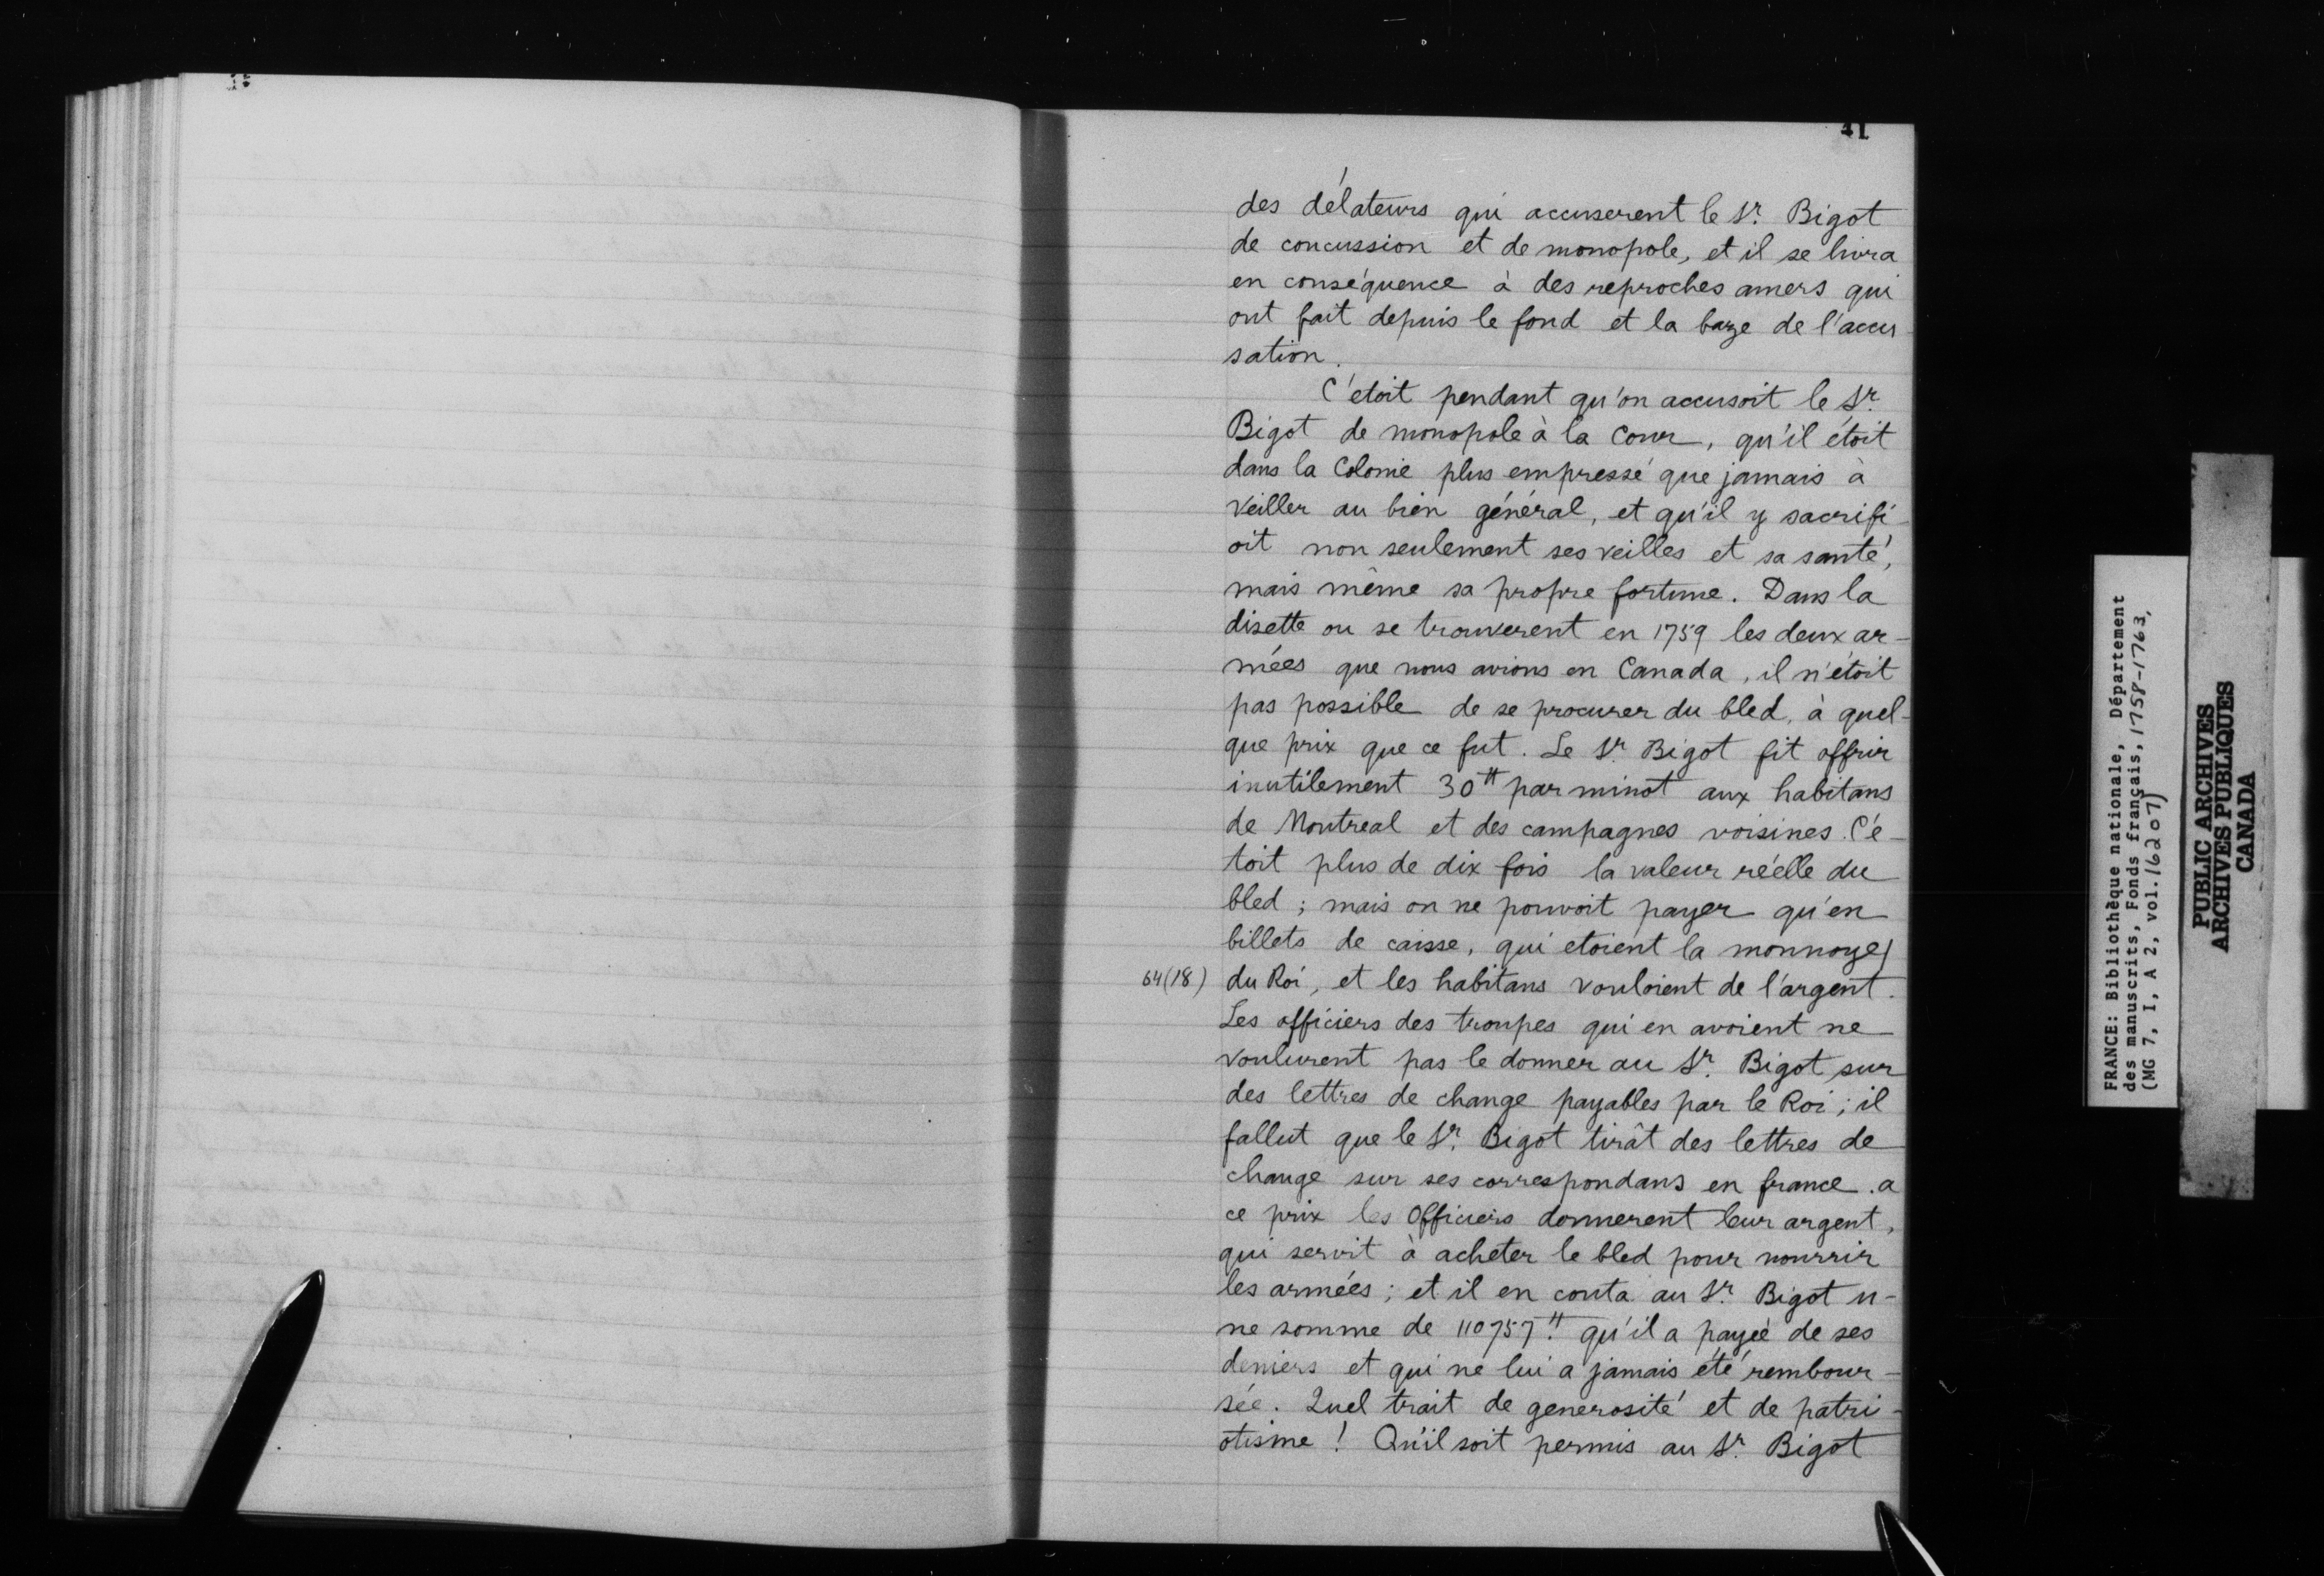 41
des délateurs qui accuserent le Sr. Bigot
de concussion et de monopole, et il se livra
en conséquence à des reproches amers qui
ont fait depuis le fond et la baze de l'accu
sation.
C'etoit pendant qu'on accusoit le Sr.
Bigot de monopole à la Cour, qu'il étoit
dans la Colonie plus empressé que jamais à
veiller au bien général, et qu'il y sacrifi-
oit non seulement ses veilles et sa santé,
mais même sa propre fortune. Dans la
disette ou se trouverent en 1759 les deux ar-
mées que nous avions en Canada, il n'étoit
pas possible de se procurer du bled, à quel-
que prix que ce fut. Le Sr. Bigot fit offrir
inutilement 30tt par minot aux habitans
de Montreal et des campagnes voisines. C'é-
toit plus de dix fois la valeur réelle du
bled ; mais on ne pouvoit payer qu'en
billets de caisse, qui etoient la monnoye/
64(18) du Roi, et les habitans vouloient de l'argent.
Les officiers des troupes qui en avoient ne
voulurent pas le donner au Sr. Bigot sur
des lettres de change payables par le Roi ; il
fallut que le Sr. Bigot tirât des lettres de
change sur ses correspondans en france. a
ce prix les Officiers donnerent leur argent,
qui servit à acheter le bled pour nourrir
les armées ; et il en couta au Sr. Bigot u-
ne somme de 110757.tt qu'il a payée de ses
deniers et qui ne lui a jamais été rembour-
sée. Quel trait de generosité et de patri-
otisme ! Qu'il soit permis au Sr. Bigot
FRANCE: Bibliothèque nationale, Département
des manuscrits, Fonds français, 1758-1763,
(MG 7, I, A 2, vol. 16207)
PUBLIC ARCHIVES
ARCHIVES PUBLIQUES
CANADA